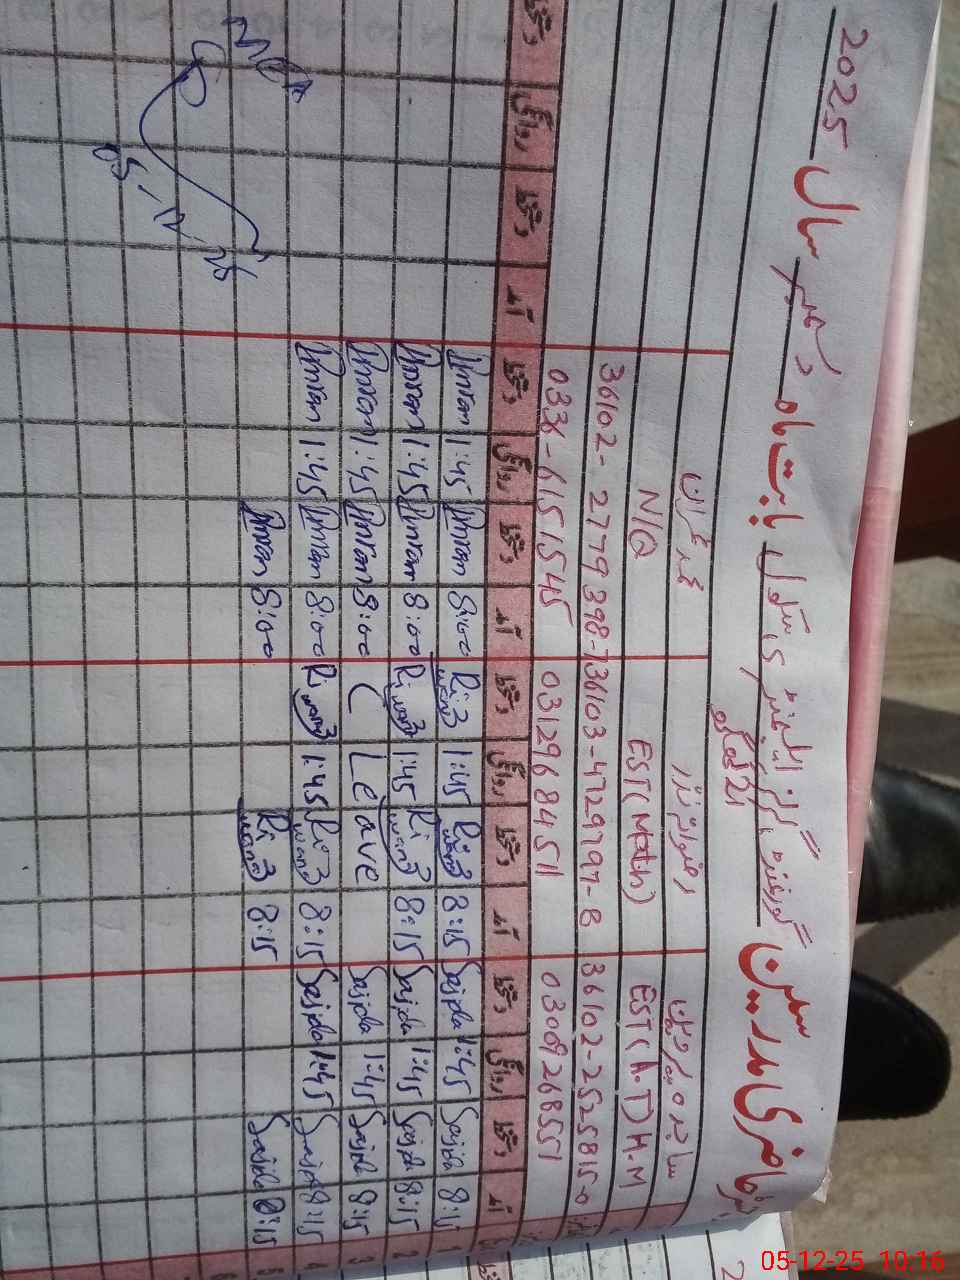 رجسٹر حاضری مدرسین گورنمنٹ گرلز ایلیمنٹری سکول بابت ماہ دسمبر سال 2025
ساجدہ پروین رضوانہ نذر محمد عمران
EST (A.T) H.M EST (Math) N/Q
36102-2525815-0 36103-4729797-8 36102-2779398-7
03092685511 03129684511 0338-6151545
آمد دستخط روانگی دستخط آمد دستخط روانگی دستخط آمد دستخط روانگی دستخط آمد دستخط روانگی دستخط
1 8:15 Sajida 1:45 Sajida 8:15 Rizwana 1:45 Rizwana 8:00 Imran 1:45 Imran
2 8:15 Sajida 1:45 Sajida 8:15 Rizwana 1:45 Rizwana 8:00 Imran 1:45 Imran
3 8:15 Sajida 1:45 Sajida Leave 8:00 Imran 1:45 Imran
4 8:15 Sajida 1:45 Sajida 8:15 Rizwana 1:45 Rizwana 8:00 Imran 1:45 Imran
5 8:15 Sajida 8:15 Rizwana 8:00 Imran
6
MEA
05-12-25
05-12-25 10:16